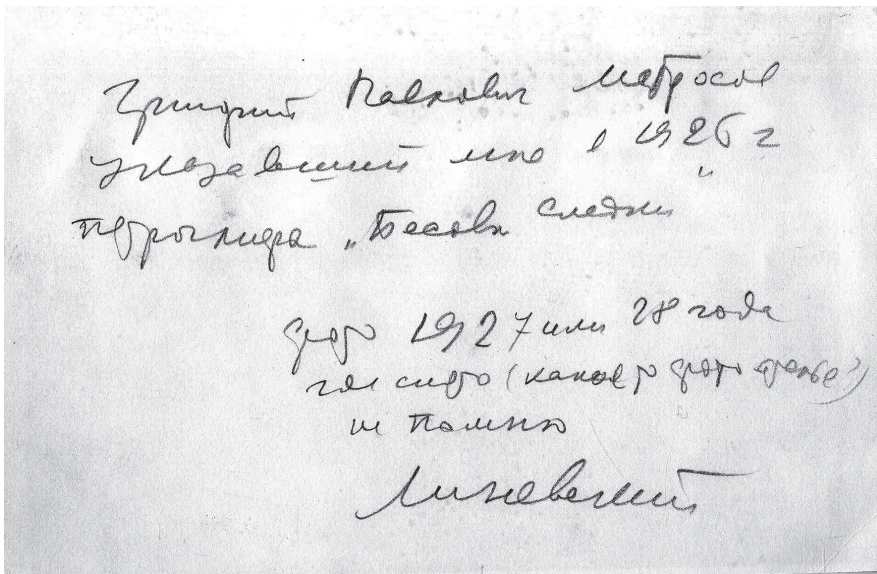 Григорий Павлович Матросов
указавший мне в 1926 г
петроглифы „Бесовы Следки"
фото 1927 или 28 года
где снято (какое то фото
не помню
Линевский